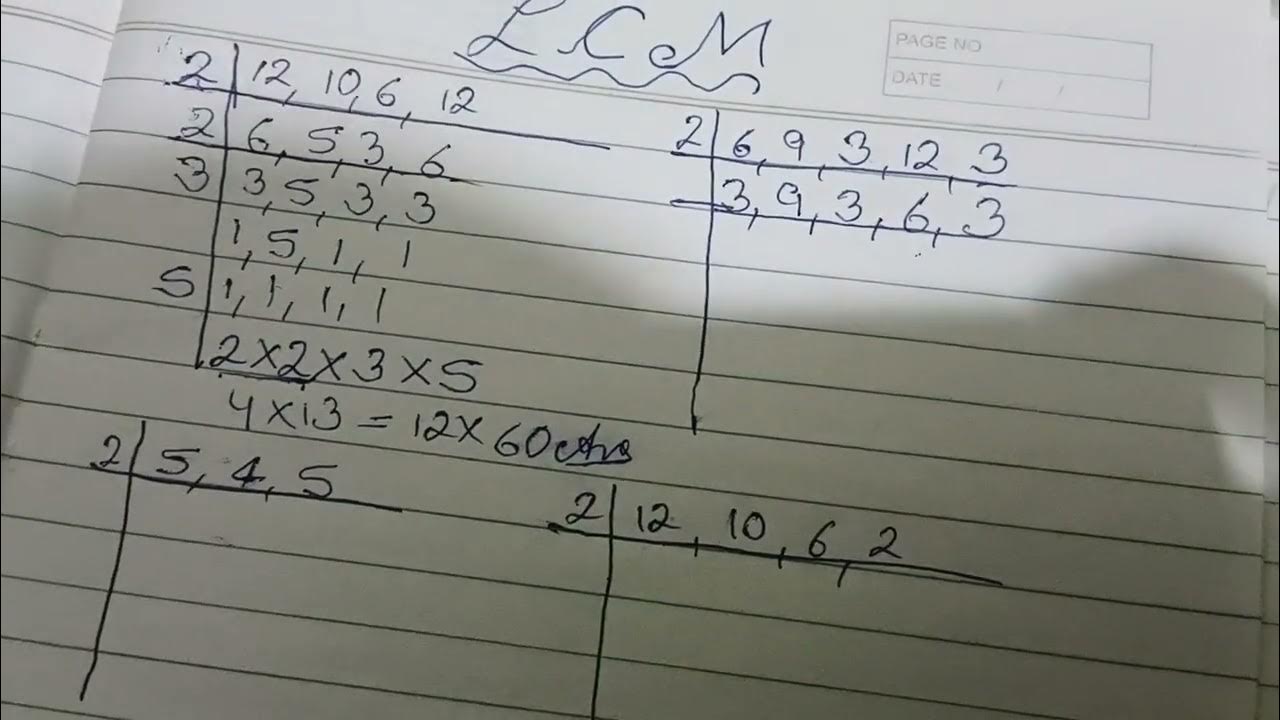 LCM
PAGE NO
DATE / /
2 | 12, 10, 6, 12
2 | 6, 5, 3, 6
3 | 3, 5, 3, 3
1, 5, 1, 1
5 | 1, 1, 1, 1
2×2×3×5
4×13=12×60
2 | 6, 9, 3, 12, 3
3, 9, 3, 6, 3
2 | 5, 4, 5
2 | 12, 10, 6, 2